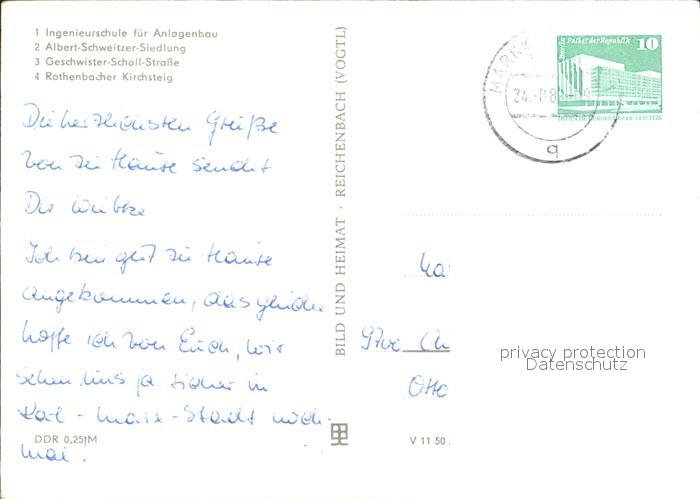 1 Ingenieurschule für Anlagenbau
2 Albert-Schweitzer-Siedlung
3 Geschwister-Scholl-Straße
4 Rothenbacher Kirchsteig
Die herzlichsten Grüße
von zu Hause sendet
Dir Wiebke
Ich bin gut zu Hause
angekommen, das gleiche
hoffe ich von Euch, wir
sehen uns ja sicher in
Karl-Marx-Stadt noch-
mal.
DDR 0,25 M
BILD UND HEIMAT · REICHENBACH (VOGTL)
V 11 50
Berlin Palast der Republik
10
DEUTSCHE DEMOKRATISCHE REPUBLIK
MARKK
24.
q
9700
Otto
privacy protection
Datenschutz